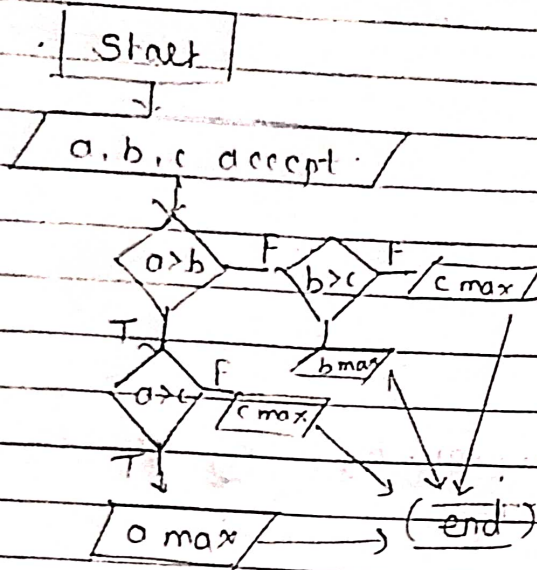 Start
a, b, c accept.
a>b F b>c F c max
T b max
a>c F c max
T
a max end